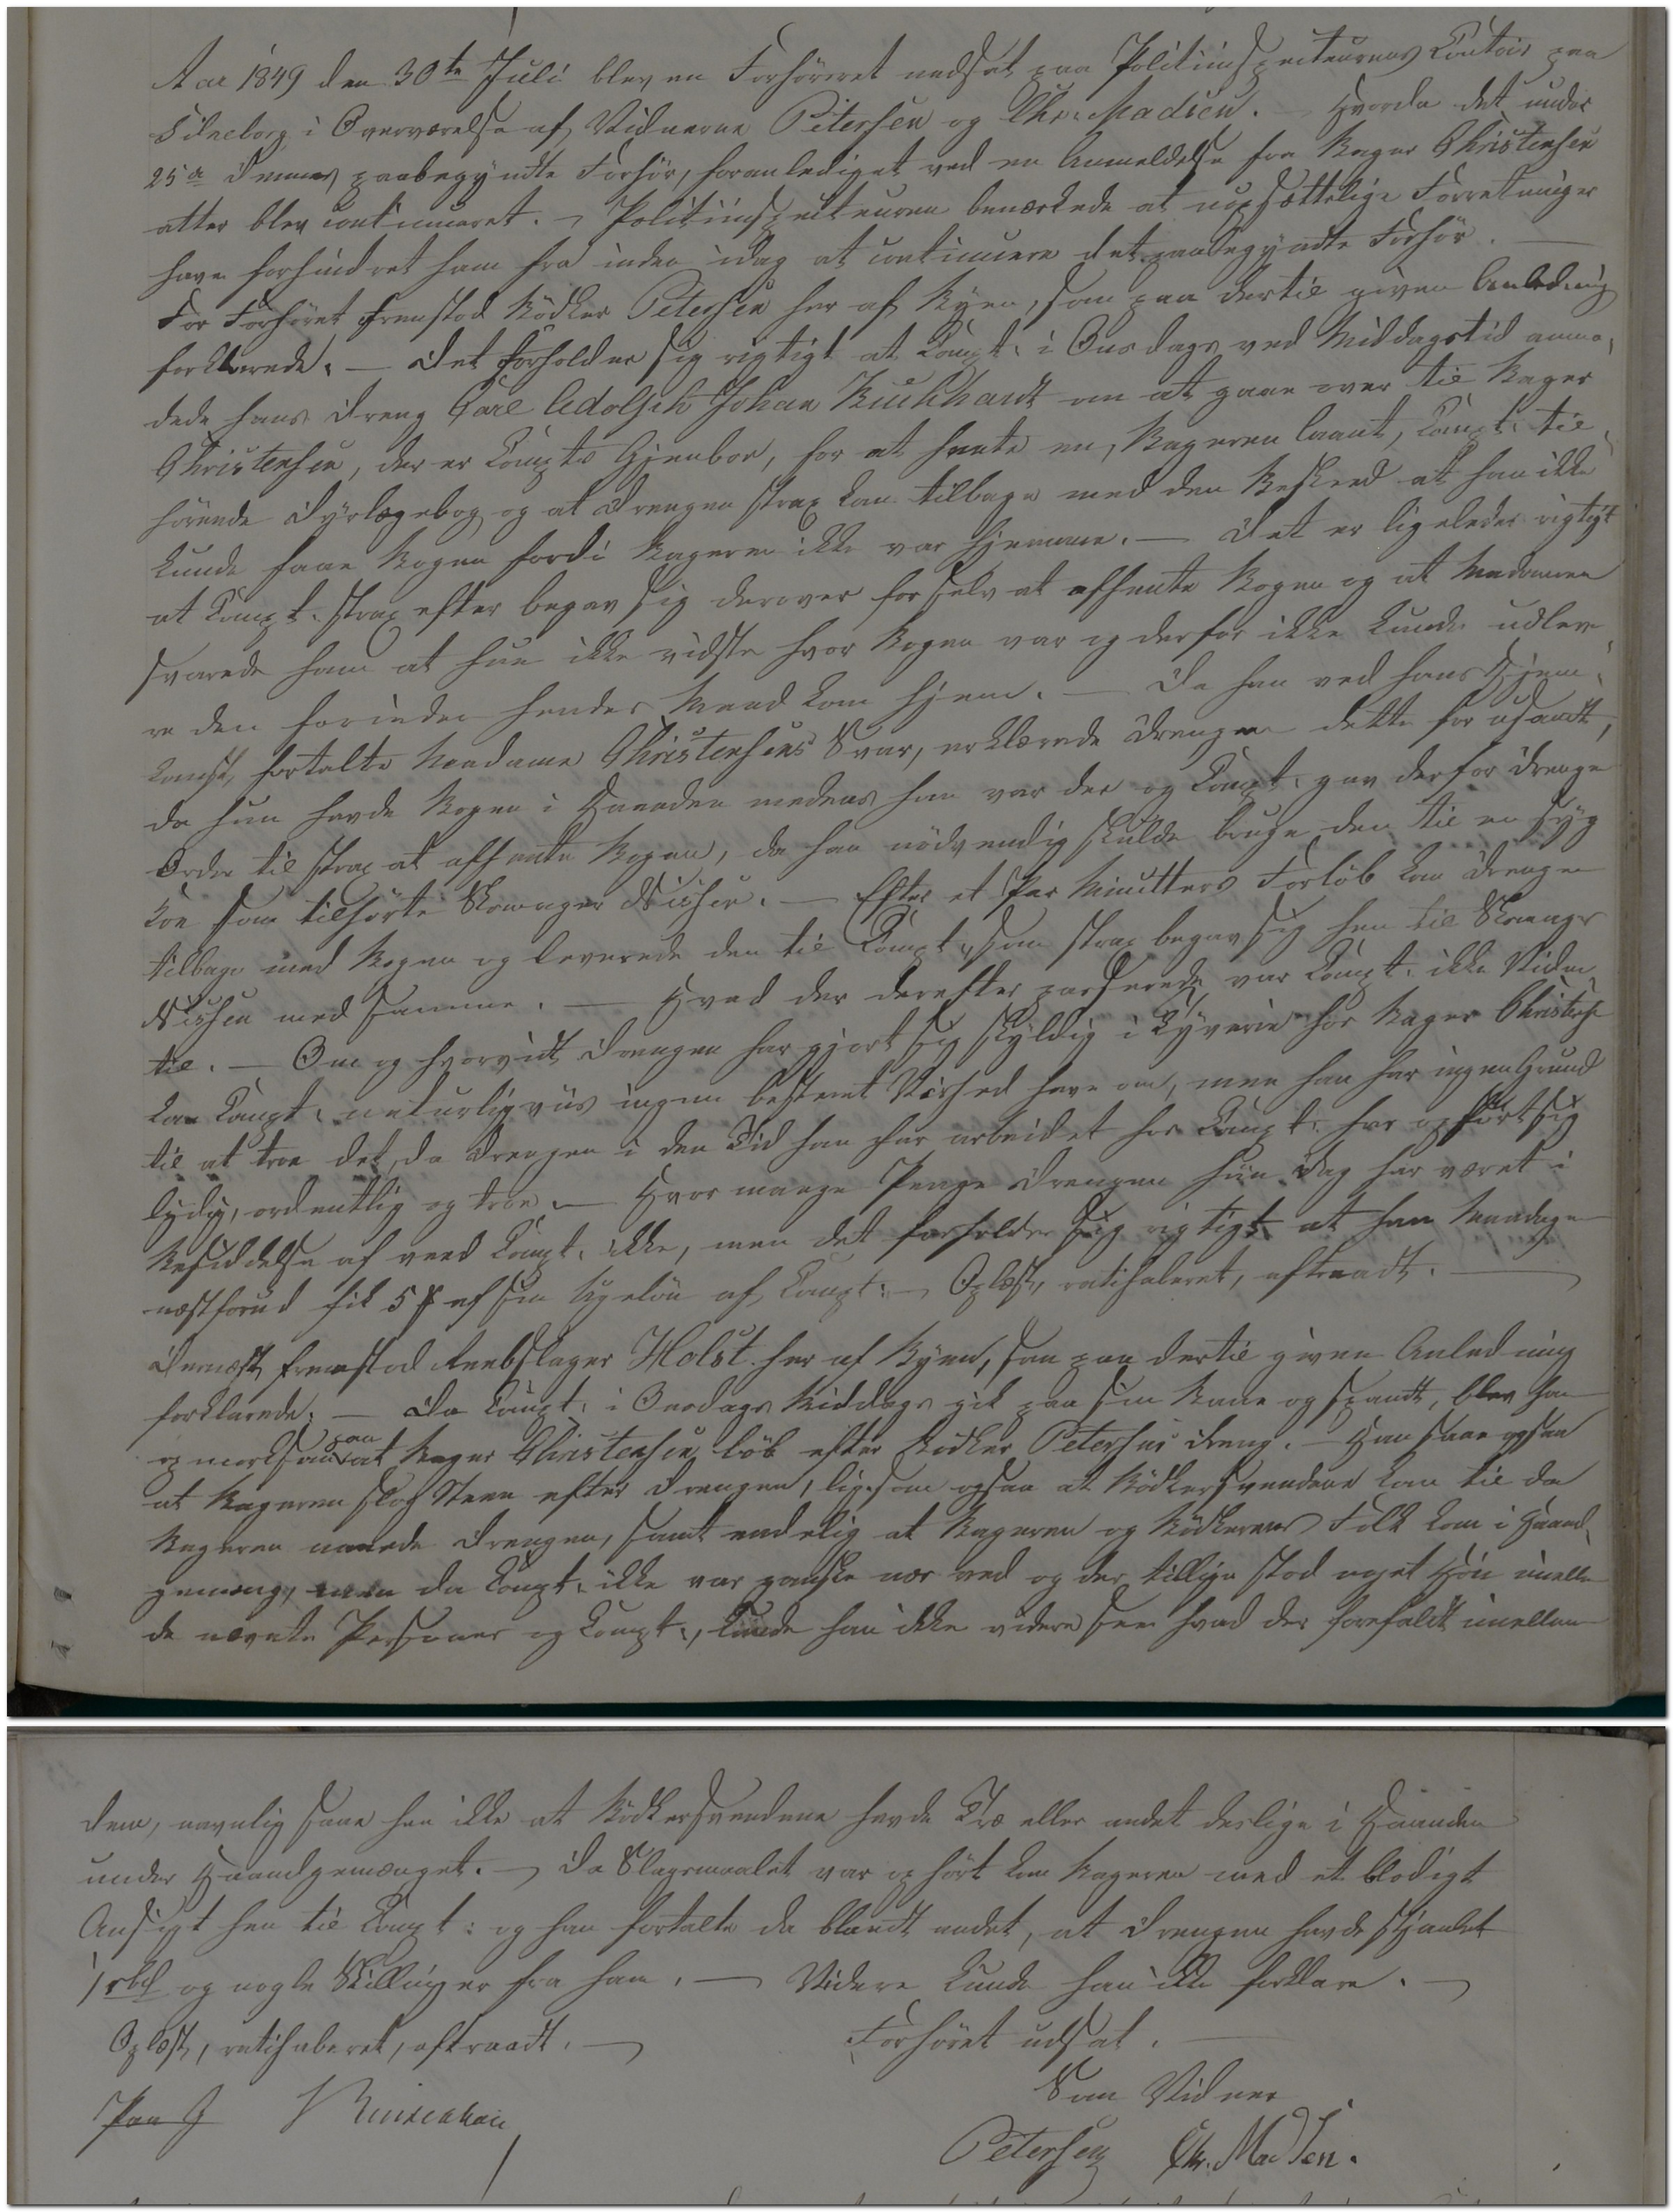 Aar 1849 den 30te Juli blev en Forhörsret nedsat paa Politiinspecteurens Contoir paa
Silkeborg i Overværelse af Vidnerne Petersen og Chr: Madsen. — Hvorda det under
25de dennes paabegyndte Forhör, foranlediget ved en Anmeldelse fra Bager Christensen
atter blev continueret. — Politiinspecteuren bemærkede at uopsættelige Forretninger
have forhindret ham fra inden idag at continuere det paabegyndte Forhör. —
For Forhöret fremstod Bödker Petersen her af Byen, som paa dertil given Anledning
forklarede: — Det forholder sig rigtigt at Compt: i Onsdags ved Middagstid anmo-
dede hans Dreng Carl Adolph Johan Buchhardt om at gaae over til Bager
Christensen, der er Compts Gjenboe, for at hente en, Bageren laant, Compt: til-
hörende Dyrlægebog og at Drengen strax kom tilbage med den Besked at han ikke
kunde faae Bogen fordi Bageren ikke var hjemme. — Det er ligeledes rigtigt
at Compt: strax efter begav sig derover for selv at afhente Bogen og at Madamen
svarede ham at hun ikke vidste hvor Bogen var og derfor ikke kunde udleve-
re den forinden hendes Mand kom hjem. — Da han ved hans Hjem-
komst, fortalte Madame Christensens Svar, erklærede Drengen dette for usandt,
da hun havde Bogen i Haanden medens han var der og Compt: gav derfor Drengen
Ordre til strax at afhente Bogen, da han nödvendig skulde bruge den til en syg
Koe som tilhörte Skomager Nissen. — Efter et Par Minutters Forlöb kom Drengen
tilbage med Bogen og leverede den til Compt:, som strax begav sig hen til Skomager
Nissen med samme. — Hvad der derefter passerede, var Compt: ikke Vidne
til. — Om og hvorvidt Drengen har gjort sig skyldig i Tyverie hos Bager Christensen
kan Compt: naturligviis ingen bestemt Vished have om, men han har ingen Grund
til at troe det, da Drengen i den Tid han har arbeidet hos Compt: har opfört sig
lydig, ordentlig og troe. — Hvor mange Penge Drengen hiin Dag har været i
Besiddelse af veed Compt: ikke, men det forholder sig rigtigt at han Mandagen
næstforud fik 5 ß af sin Ugelön af Compt: — Oplæst, ratihaberet, aftraadt. —
Dernæst fremstod Reebslager Holst her af Byen, som paa dertil given Anledning
forklarede: — Da Compt: i Onsdags Middags gik paa sin Bane og spandt, blev han
opmærksom paa at Bager Christensen löb efter Bödker Petersens Dreng. — Han saae ogsaa
at Bageren slog Steen efter Drengen, ligesom ogsaa at Bödkersvendene kom til da
Bageren naaede Drengen, samt endelig at Bageren og Bödkerens Folk kom i Haand-
gemæng, men da Compt: ikke var ganske nær ved og der tillige stod noget Höi imellem
de nævnte Personer og Compt:, kunde han ikke videre see hvad der forefaldt imellem
dem, navnlig saae han ikke at Bödkersvendene havde Træ eller andet deslige i Haanden
under Haandgemænget. — Da Slagsmaalet var ophört kom Bageren med et blodigt
Ansigt hen til Compt: og han fortalte da blandt andet, at Drengen havde stjaalet
1 rbd og nogle Skillinger fra ham. — Videre kunde han ikke forklare. —
Oplæst, ratihaberet, aftraadt. — Forhöret udsat. —
Som Vidner
Petersen Chr. Madsen.